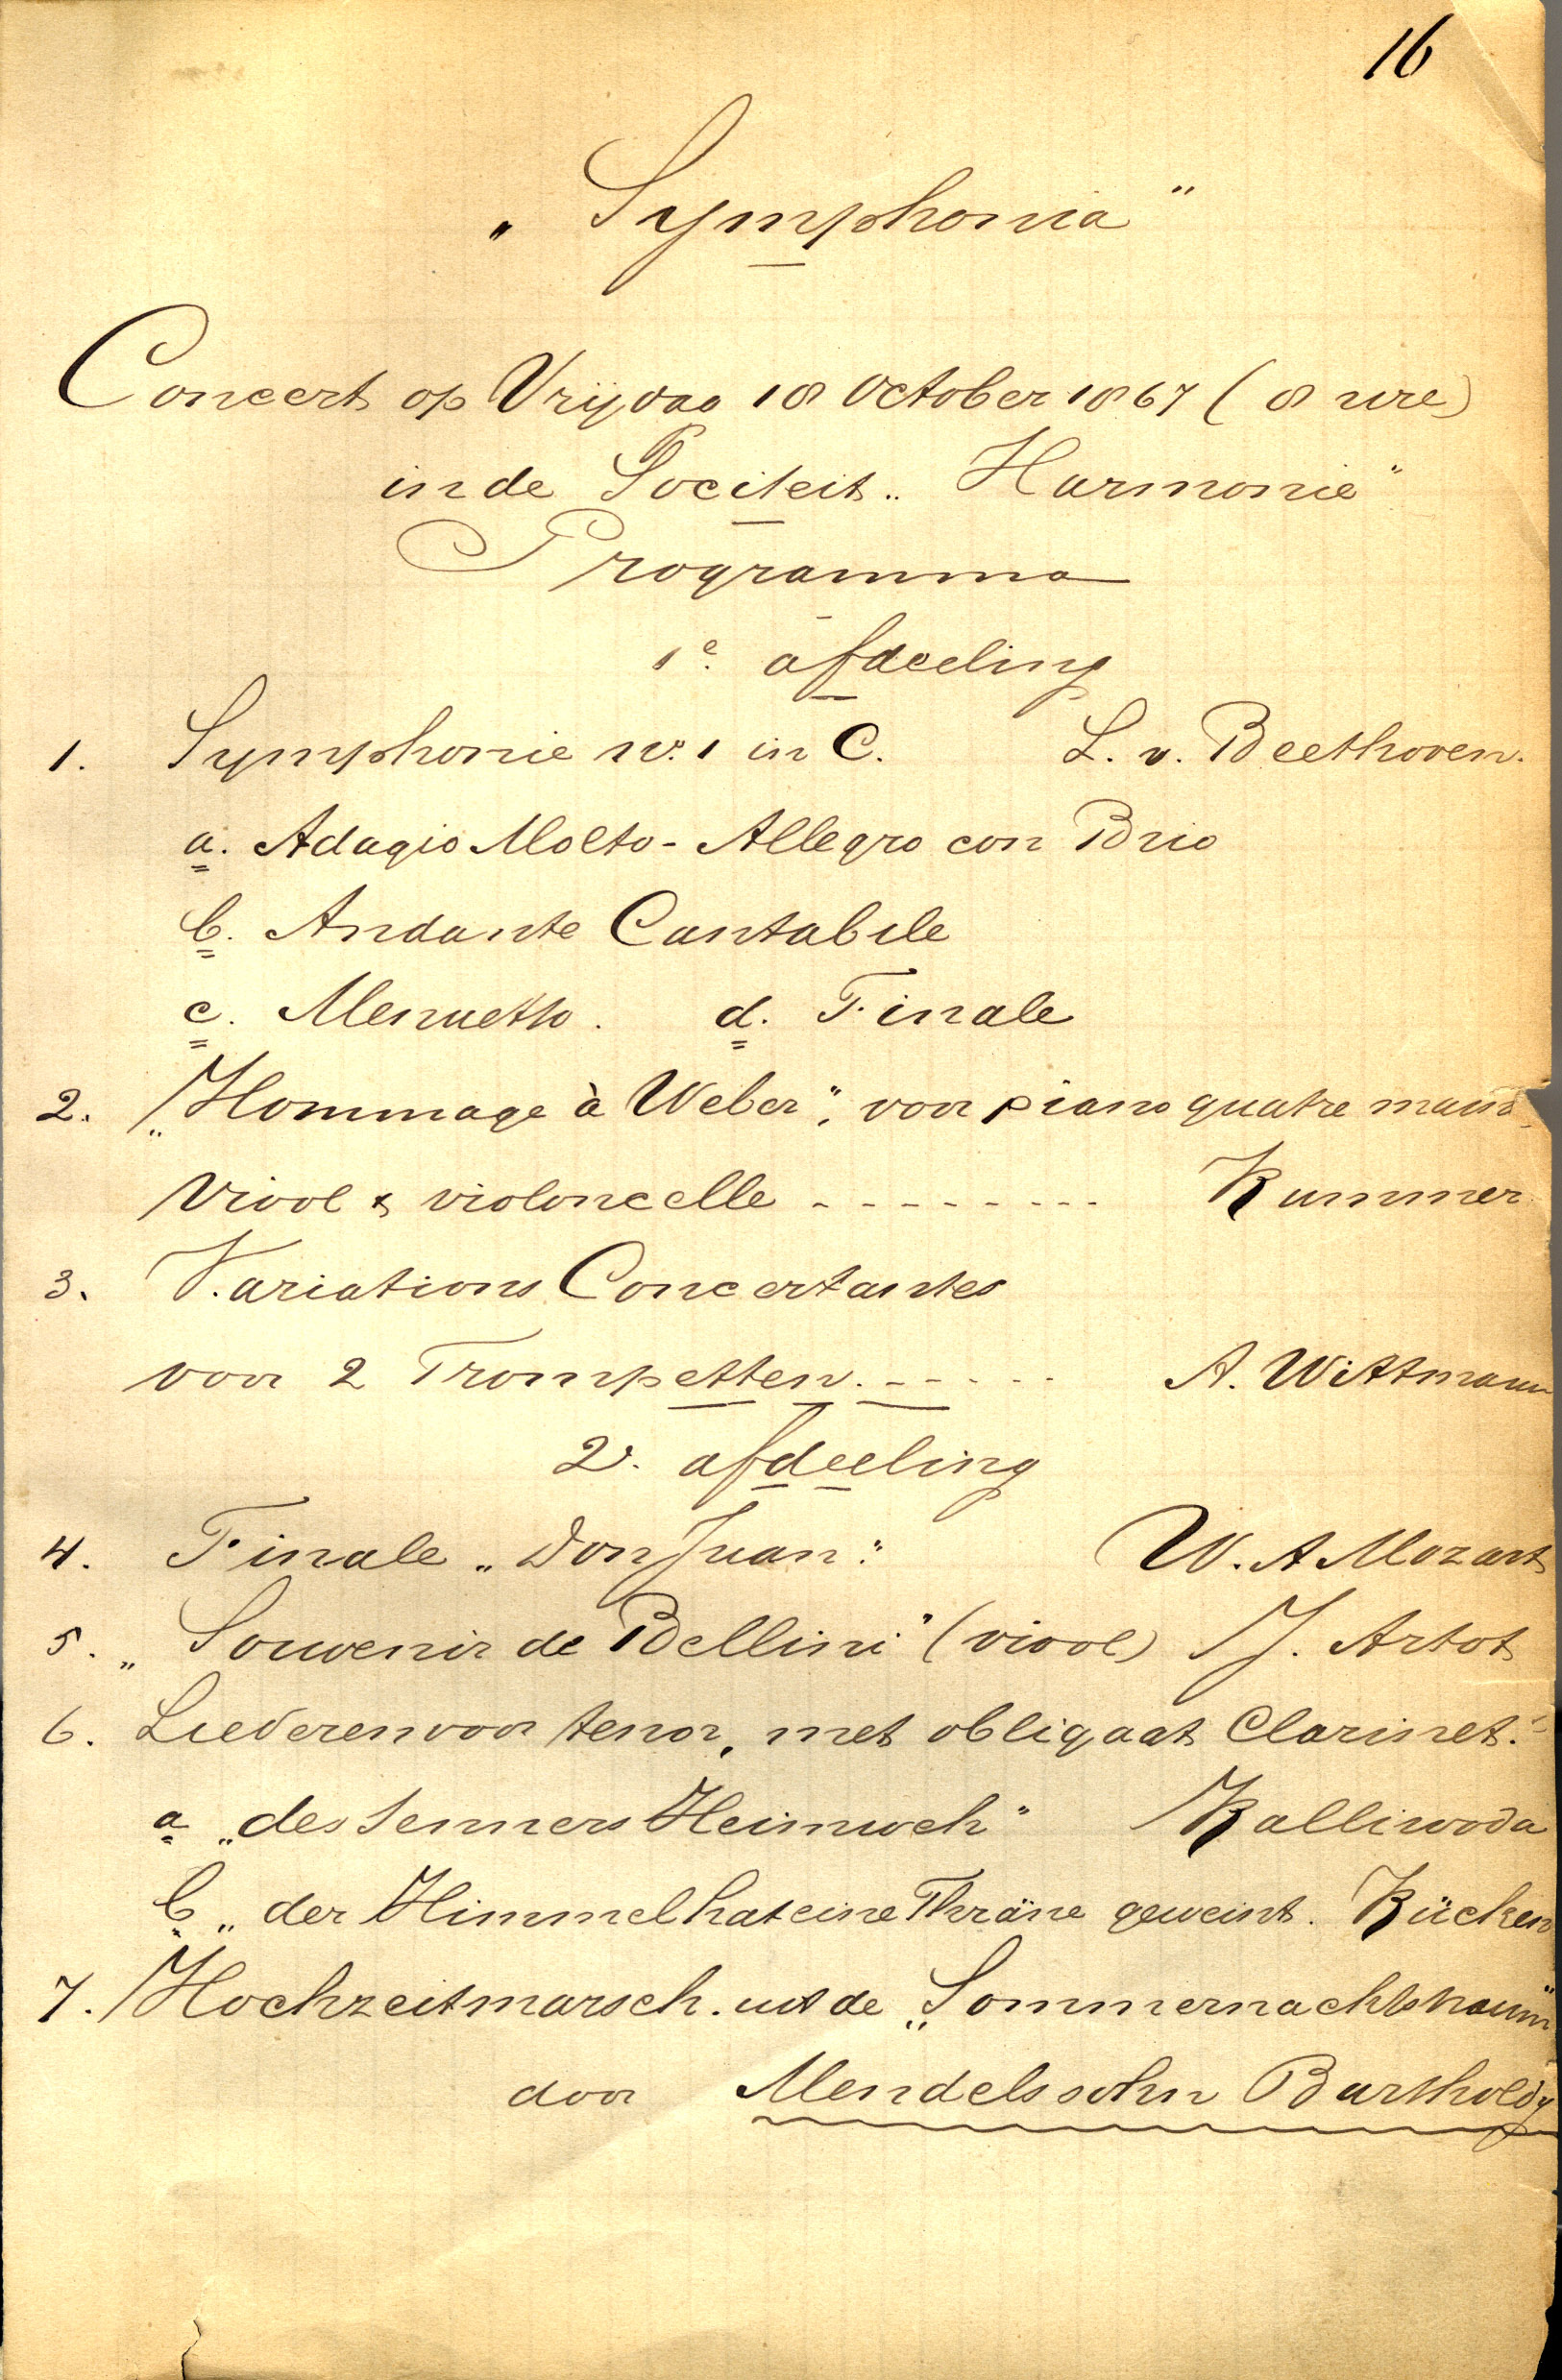 16
„Symphonia"
Concert op Vrijdag 18 October 1867 (8 ure)
in de Sociteit „Harmonie"
Programma
1e afdeeling
1. Symphonie No. 1 in C. L. v. Beethoven.
a. Adagio Molto - Allegro con Brio
b. Andante Cantabile
c. Menuetto. d. Finale
2. „Hommage à Weber", voor piano quatre mains
viool & violoncelle - - - - - - - - - Kummer
3. Variations Concertantes
voor 2 Trompetten. - - - - - A. Wittmann
2e. afdeeling
4. Finale „Don Juan". W. A Mozart
5. „Souvenir de Bellini" (viool) J. Artot
6. Liederen voor tenor, met obligaat Clarinet.
a „des Senners Heimweh" Kalliwoda
b „der Himmel hat eine Thräne geweint. Kücken
7. Hochzeitmarsch. uit de „Sommernachtstraum"
door Mendelssohn Bartholdy